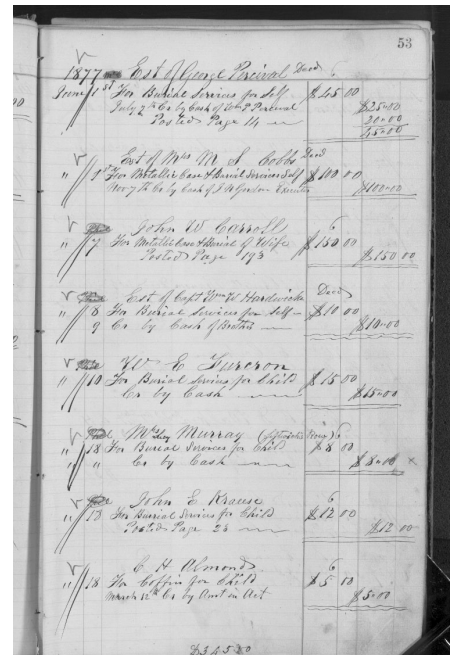 53
1877 Est of George Percival Decd
June 1st For Burial Services for Self $45 00
July 7th Cr by Cash of Wm P Percival $25.00
Posted Page 14 20.00
45.00
Est of Mrs M S Cobbs Decd
" 1st For Metallic Case & Burial Services Self $100 00
Nov 7th Cr by Cash of Gordon Executor $100.00
John W Carroll 6
" 7 For Metallic Case & Burial of Wife $150 00
Posted Page 193 $150.00
Est of Capt Wm W Hardwicke Decd
" 8 For Burial Services for Self $10 00
9 Cr by Cash of $10.00
W E Furcron
" 10 For Burial Services for Child $15 00
Cr by Cash $15.00
Mrs Murray 6
" 18 For Burial Services for Child $8 00
" " Cr by Cash $8.00 x
John E Krause 6
" 18 For Burial Services for Child $12 00
Posted Page 23 $12 00
C H Almond 6
" 18 For Coffin for Child $5 00
March 12th Cr by Amt in Act $5.00
$345.00